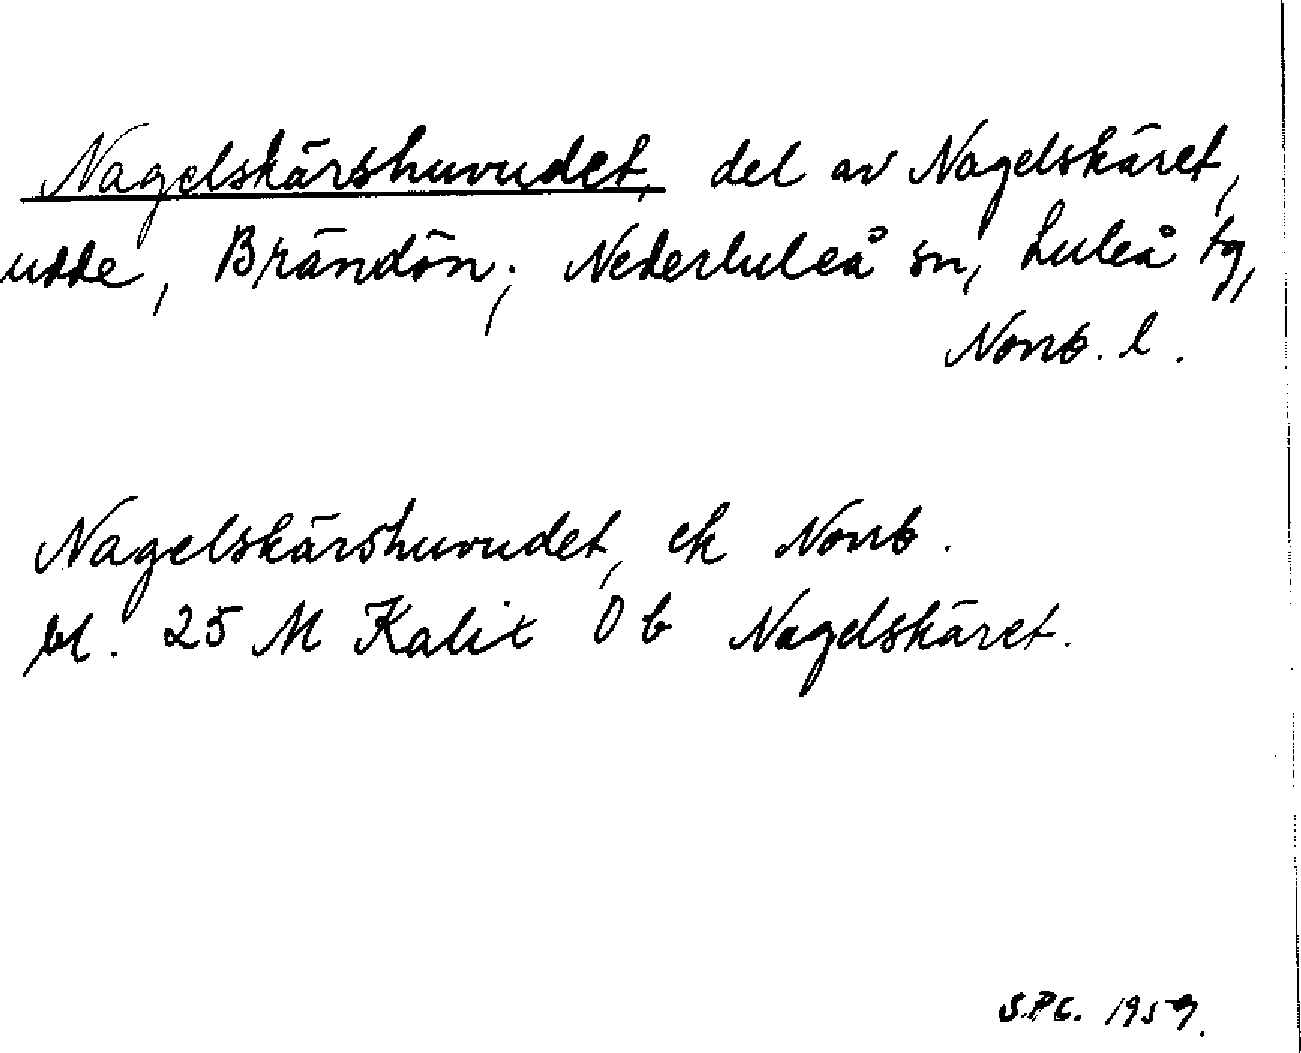 Nagelskärshuvudet, del av Nagelskäret,
udde, Brändön; Nederluleå sn, Luleå tg,
Norrb. l.
Nagelskärshuvudet, ek Norrb.
bl. 25 M Kalix O b Nagelskäret.
S.P.C. 1959.